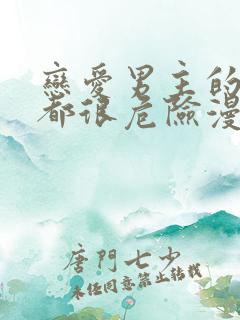 戀愛男主的
都很危險漫
唐門七少
未經同意禁止轉載